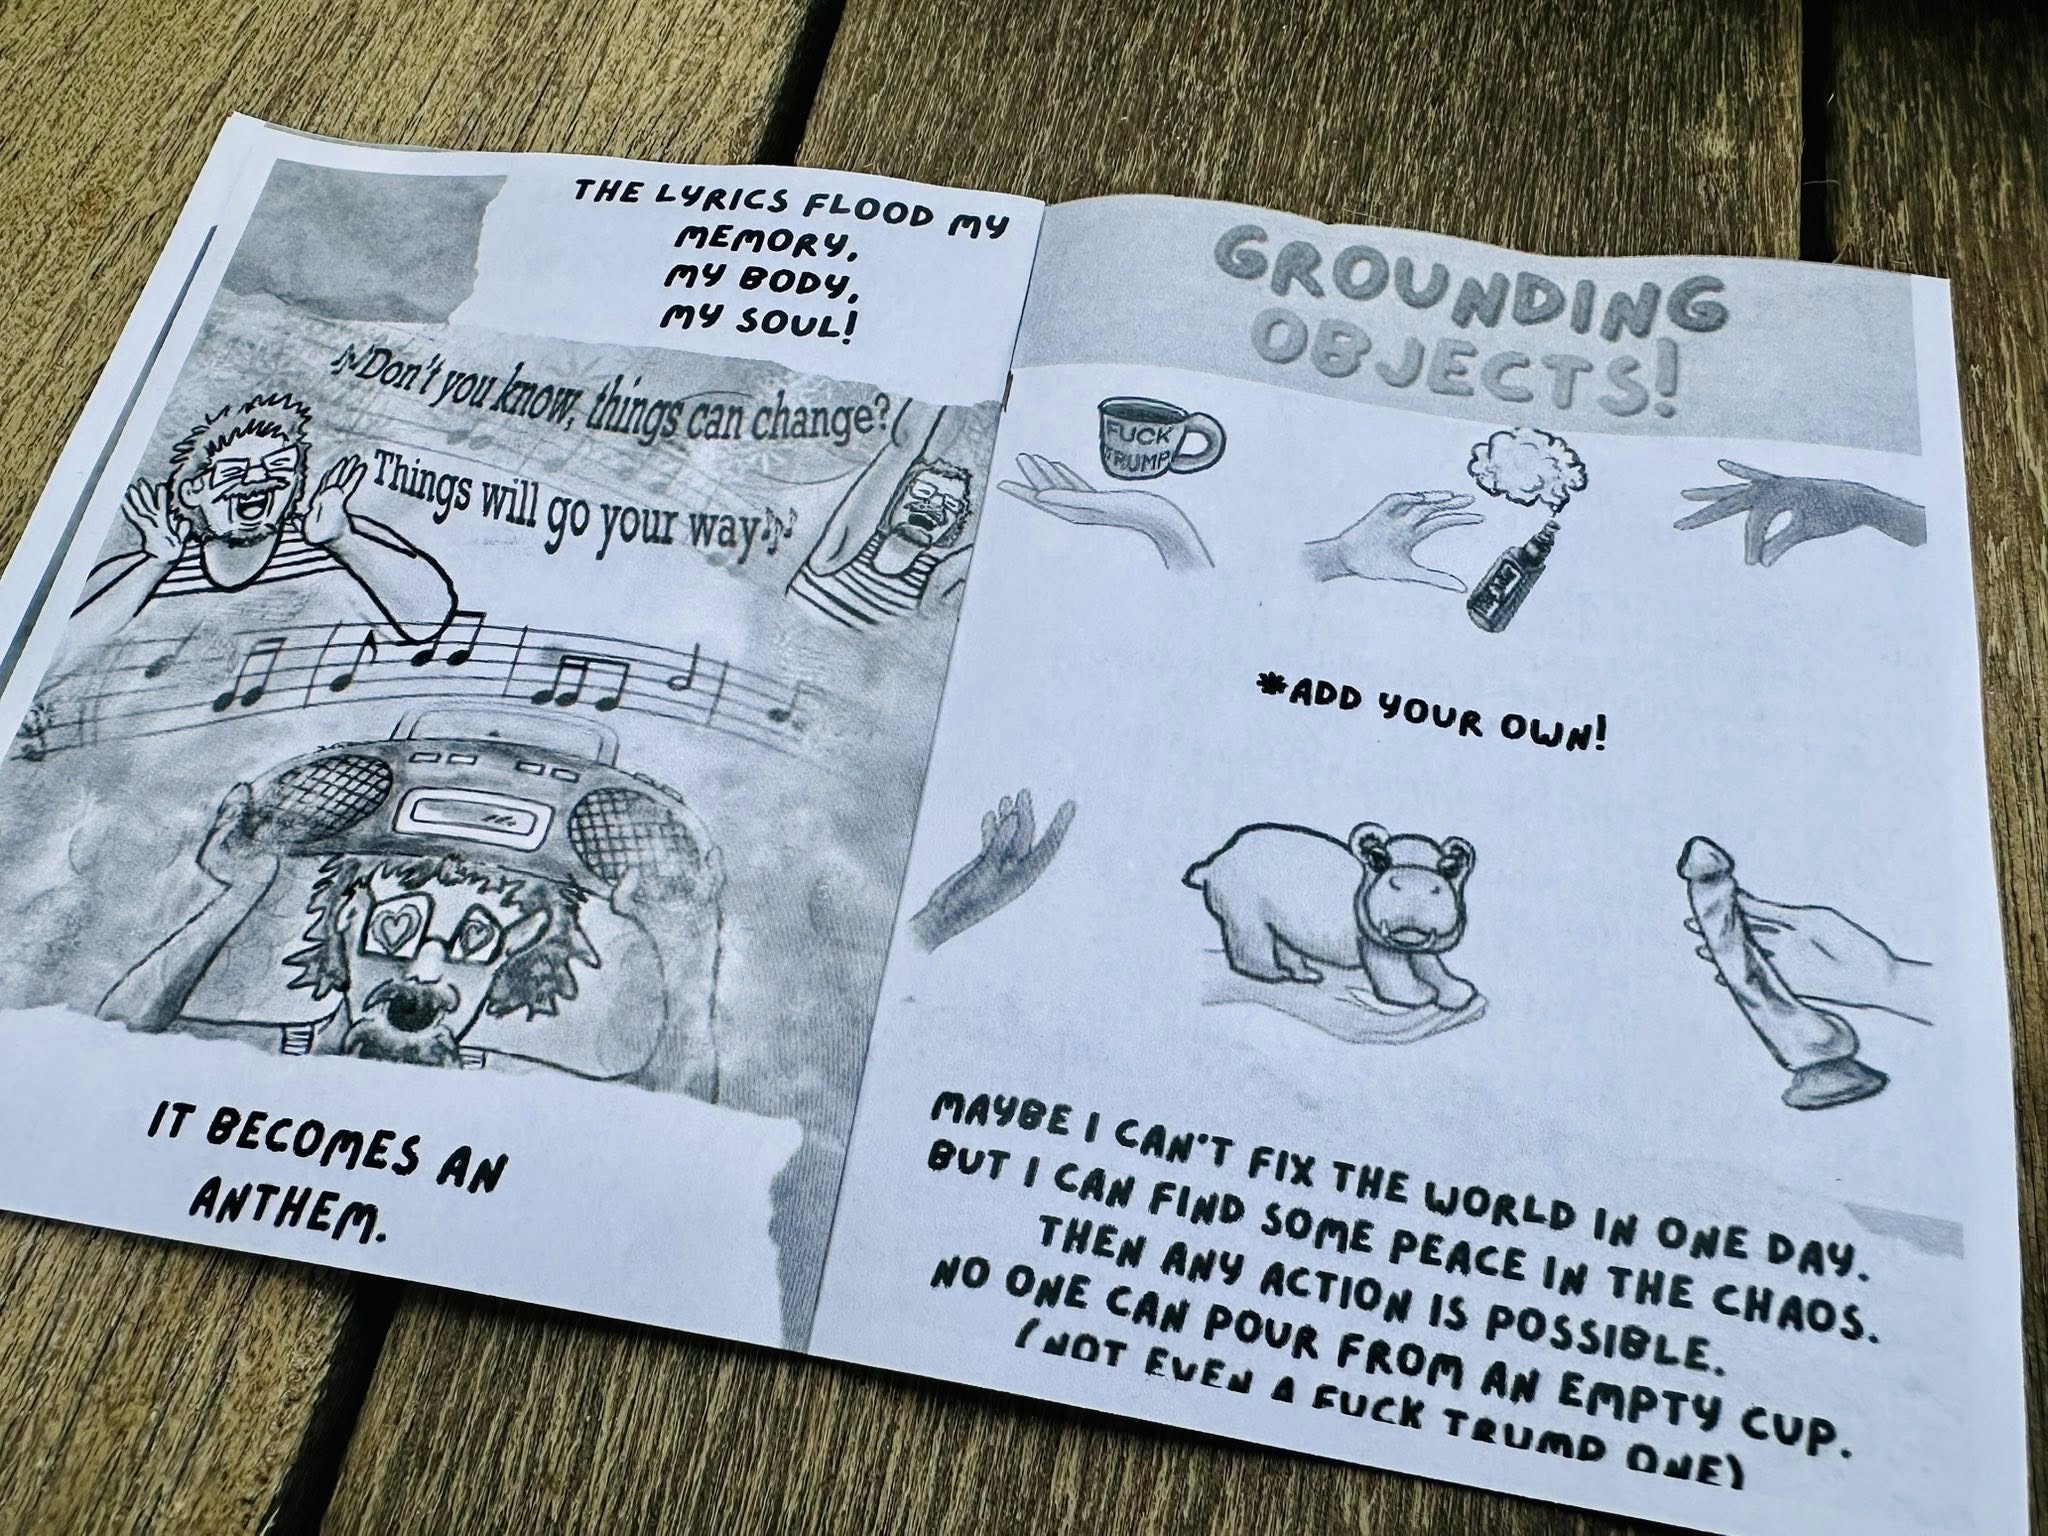 THE LYRICS FLOOD MY
MEMORY,
MY BODY,
MY SOUL!
♪Don't you know, things can change?
Things will go your way♪
IT BECOMES AN
ANTHEM.
GROUNDING
OBJECTS!
FUCK
TRUMP
*ADD YOUR OWN!
MAYBE I CAN'T FIX THE WORLD IN ONE DAY.
BUT I CAN FIND SOME PEACE IN THE CHAOS.
THEN ANY ACTION IS POSSIBLE.
NO ONE CAN POUR FROM AN EMPTY CUP.
(NOT EVEN A FUCK TRUMP ONE)